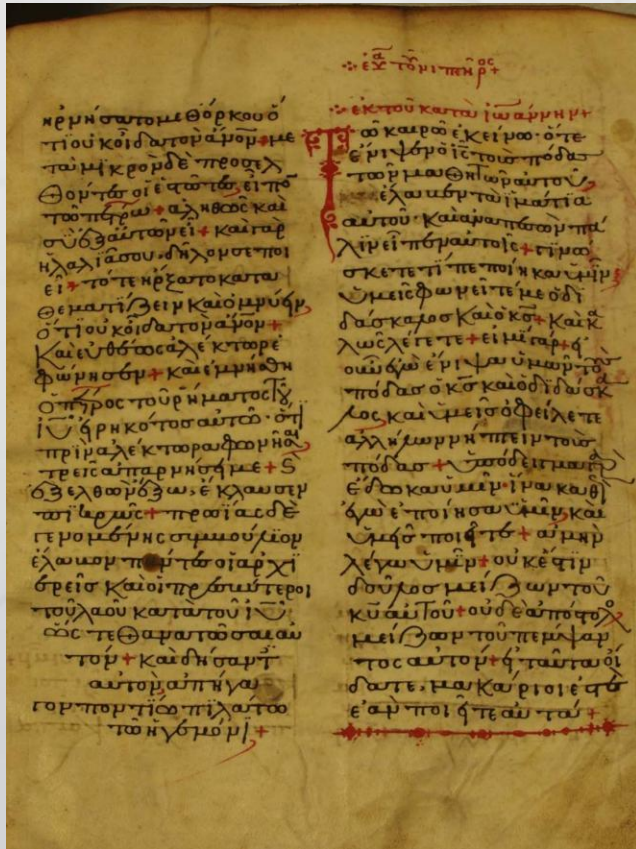 ἠρνήσατο μεθ ὅρκου ὅ
τι οὐκ οἶδα τὸν ἄνον + με
τὰ μικρὸν δὲ προσελ
θόντες οἱ ἑστῶτες, εἶπο
τῶ πέτρω + ἀληθῶς καὶ
σὺ ἐξ αὐτῶν εἶ + καὶ γὰρ
ἡ λαλιά σου, δῆλόν σε ποι
εῖ + τότε ἤρξατο κατα
θεματίζειν καὶ ὀμνύειν,
ὅτι οὐκ οἶδα τὸν ἄνον +
καὶ εὐθέως ἀλέκτωρ ἐ
φώνησεν + καὶ ἐμνήσθη
ὁ πέτρος τοῦ ῥήματος τοῦ
ιῦ εἰρηκότος αὐτῶ· ὅτι
πρὶν ἀλέκτορα φωνῆσαι
τρεῖς ἀπαρνήση με + ϗ
ἐξελθὼν ἔξω, ἔκλαυσεν
πικρῶς + πρωΐας δὲ
γενομένης συμμούλιον
ἔλαβον πάντες οἱ ἀρχι
ερεῖς καὶ οἱ πρεσβύτεροι
τοῦ λαοῦ κατὰ τοῦ ιῦ
ὥς τε θανατῶσαι αὐ
τόν + καὶ δήσαντ
αὐτὸν, ἀπήγα
γον ποντίω πιλάτω
τῶ ἡγεμόνι +
ἐκ τοῦ κατὰ ἰωάννην +
Τῶ καιρῶ ἐκείνω· ὅτε
ἔνιψεν ὁ ις τοὺς πόδας
τῶν μαθητῶν αὐτοῦ,
ἔλαβεν τὰ ἱμάτια
αὐτοῦ· καὶ ἀναπεσὼν πά
λιν εἶπεν αὐτοῖς + γινώ
σκετε τί πεποίηκα ὑμῖν,
ὑμεῖς φωνεῖτέ με ὁ δι
δάσκαλος καὶ ὁ κς + καὶ κα
λῶς λέγετε + εἰμὶ γάρ + εἰ
οὖν ἐγὼ ἔνιψα ὑμῶν τοὺς
πόδας ὁ κς καὶ ὁ διδάσκα
λος καὶ ὑμεῖς ὀφείλετε
ἀλλήλων νίπτειν τοὺς
πόδας + ὑπόδειγμα γὰρ
ἔδωκα ὑμῖν· ἵνα καθὼς
ἐγὼ ἐποίησα ὑμῖν, καὶ
ὑμεῖς ποιῆτε + ἀμὴν
λέγω ὑμῖν + οὐκ ἔστιν
δοῦλος μείζων τοῦ
κυ αὐτοῦ + οὐδὲ ἀπόστολος
μείζων τοῦ πέμψαν
τος αὐτόν + εἰ ταῦτα οἴ
δατε, μακάριοί ἐστε
ἐὰν ποιῆτε αὐτά +